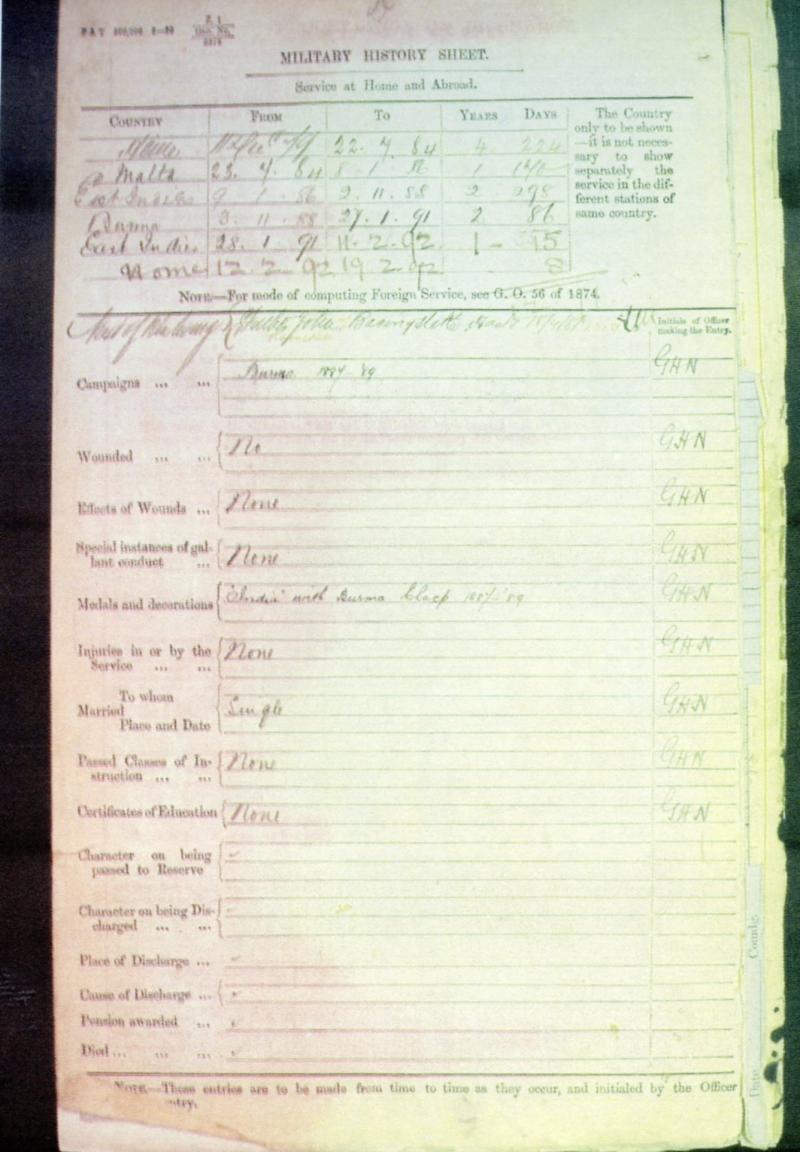 MILITARY HISTORY SHEET.
Service at Home and Abroad.
COUNTRY FROM TO YEARS DAYS
Home 22. 7. 84 4 224
Malta 23. 7. 84 8 1 86 1
East Indies 9 1 86 2. 11. 88 2 298
Burma 3. 11. 88 27. 1. 91 2 86
East Indies 28. 1. 91 11. 2. 92 1 - 15
Home 12 2 92 19 2 92 8
The Country
only to be shown
—it is not neces-
sary to show
separately the
service in the dif-
ferent stations of
same country.
NOTE.—For mode of computing Foreign Service, see G. O. 56 of 1874.
Next of Kin living John Basingstoke
Initials of Officer
making the Entry.
Campaigns ... ... Burma 1887-89 GHN
Wounded ... ... No GHN
Effects of Wounds ... None GHN
Special instances of gal-
lant conduct ... None GHN
Medals and decorations "India" with Burma Clasp 1887-'89 GHN
Injuries in or by the
Service ... ... None GHN
To whom
Married Single GHN
Place and Date
Passed Classes of In-
struction ... ... None GHN
Certificates of Education None GHN
Character on being
passed to Reserve
Character on being Dis-
charged ... ...
Place of Discharge ...
Cause of Discharge ...
Pension awarded ...
Died ... ... ...
NOTE.—These entries are to be made from time to time as they occur, and initialed by the Officer